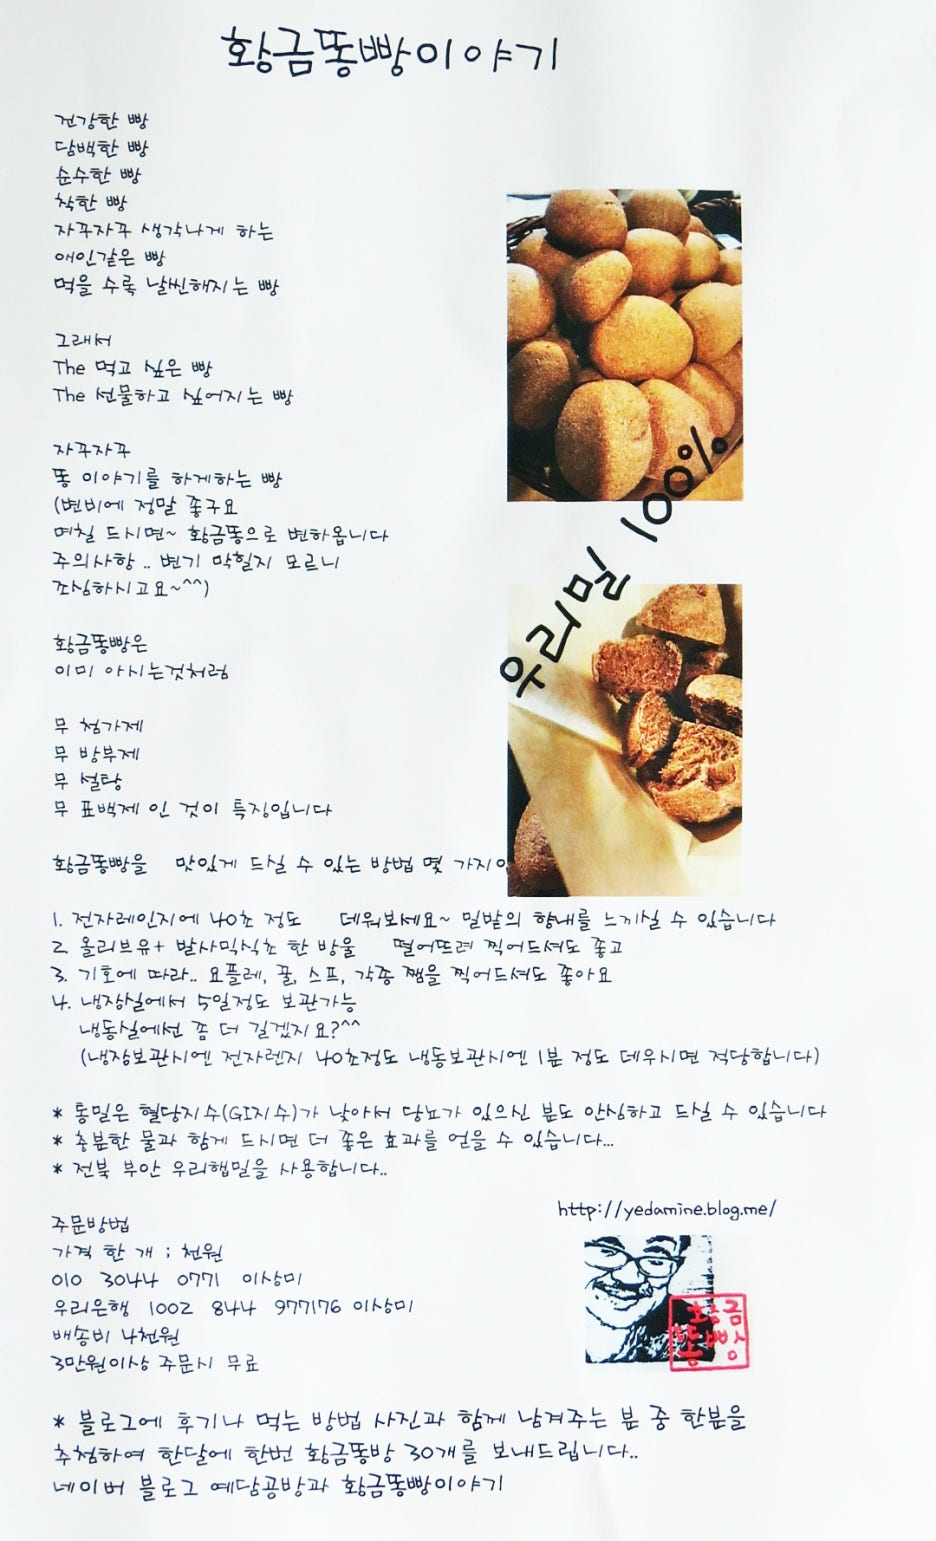 황금똥빵이야기
건강한 빵
담백한 빵
순수한 빵
착한 빵
자꾸자꾸 생각나게 하는
애인같은 빵
먹을 수록 날씬해지는 빵
그래서
The 먹고 싶은 빵
The 선물하고 싶어지는 빵
자꾸자꾸
똥 이야기를 하게하는 빵
(변비에 정말 좋구요
며칠 드시면~ 황금똥으로 변하옵니다
주의사항 .. 변기 막힐지 모르니
조심하시고요~^^)
우리밀 100%
황금똥빵은
이미 아시는것처럼
무 첨가제
무 방부제
무 설탕
무 표백제 인 것이 특징입니다
황금똥빵을 맛있게 드실 수 있는 방법 몇 가지
1. 전자레인지에 40초 정도 데워보세요~ 밀밭의 향내를 느끼실 수 있습니다
2. 올리브유+ 발사믹식초 한 방울 떨어뜨려 찍어드셔도 좋고
3. 기호에 따라.. 요플레, 꿀, 스프, 각종 쨈을 찍어드셔도 좋아요
4. 냉장실에서 5일정도 보관가능
냉동실에선 좀 더 길겠지요?^^
(냉장보관시엔 전자렌지 40초정도 냉동보관시엔 1분 정도 데우시면 적당합니다)
* 통밀은 혈당지수(GI지수)가 낮아서 당뇨가 있으신 분도 안심하고 드실 수 있습니다
* 충분한 물과 함께 드시면 더 좋은 효과를 얻을 수 있습니다...
* 전북 부안 우리햅밀을 사용합니다..
http://yedamine.blog.me/
주문방법
가격 한 개 ; 천원
010 3044 0771 이상미
우리은행 1002 844 977176 이상미
배송비 4천원
3만원이상 주문시 무료
황금
똥빵
* 블로그에 후기나 먹는 방법 사진과 함께 남겨주는 분 중 한분을
추첨하여 한달에 한번 황금똥방 30개를 보내드립니다..
네이버 블로그 예담공방과 황금똥빵이야기